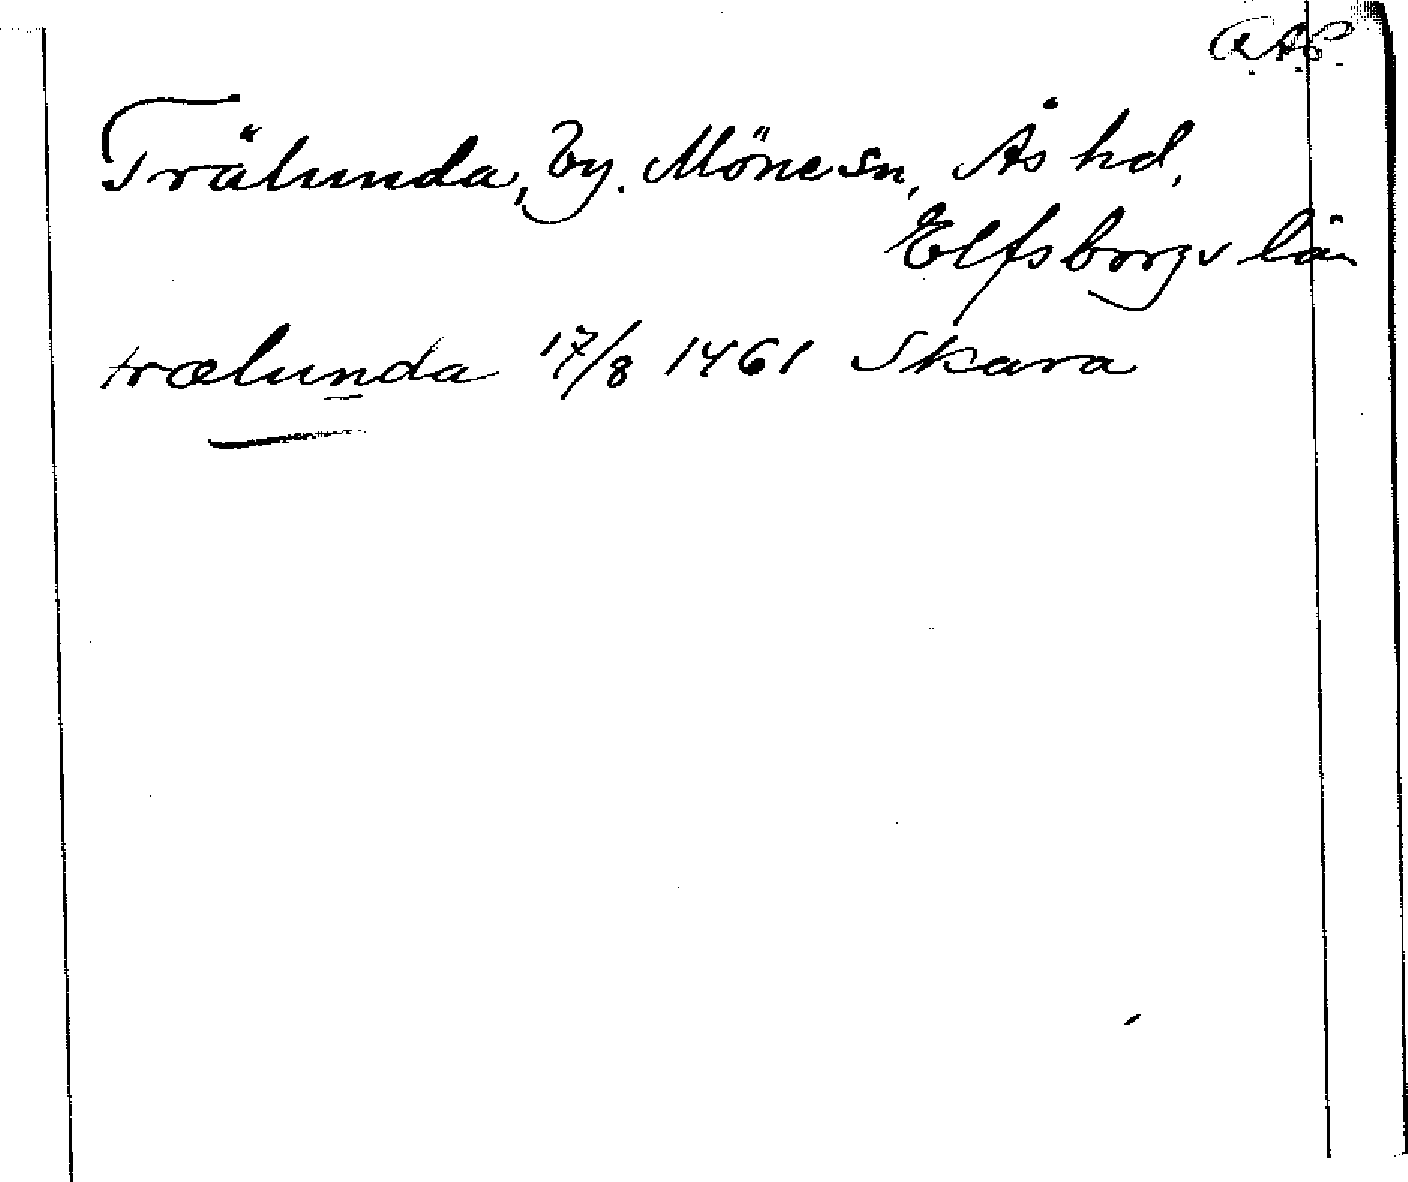 RAP.
Trälunda, by. Möne sn, Ås hd,
Elfsborgs län
trælunda 17/8 1461 Skara